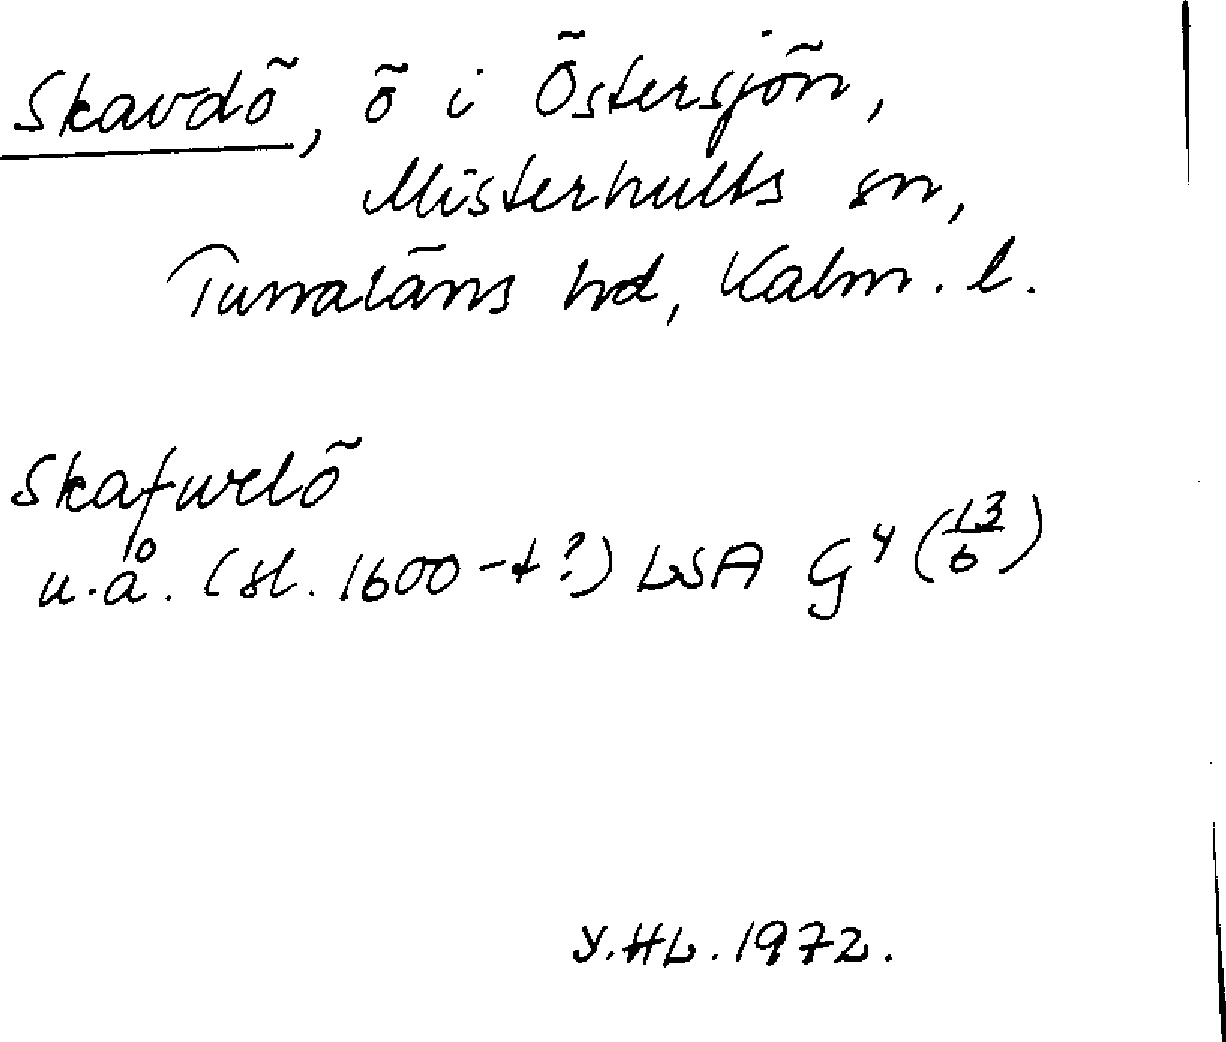 Skavdö, ö i Östersjön,
Misterhults sn,
Tunaläns hd, Kalm. l.
Skafwelö
u.å. (sl. 1600-t?) LSA G⁴ (13/6)
Y.HL. 1972.